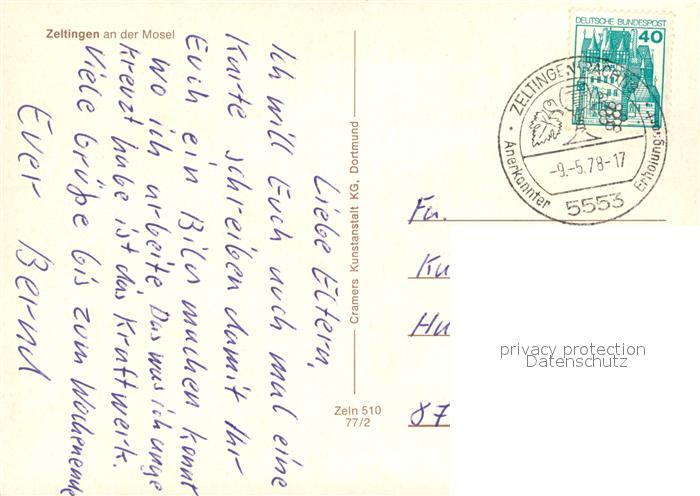 Zeltingen an der Mosel
Liebe Eltern,
Ich will Euch auch mal eine
Karte schreiben damit Ihr
Euch ein Bild machen könnt
wo ich arbeite. Das was ich ange
kreuzt habe ist das Kraftwerk.
Viele Grüße bis zum Wochenende
Euer Bernd
Cramers Kunstanstalt KG, Dortmund
Zeln 510
77/2
DEUTSCHE BUNDESPOST
40
ZELTINGEN-RACHTIG
-9.-5.78-17
5553
Anerkannter Erholungsort
Fa.
Ku
Hu
87
privacy protection
Datenschutz